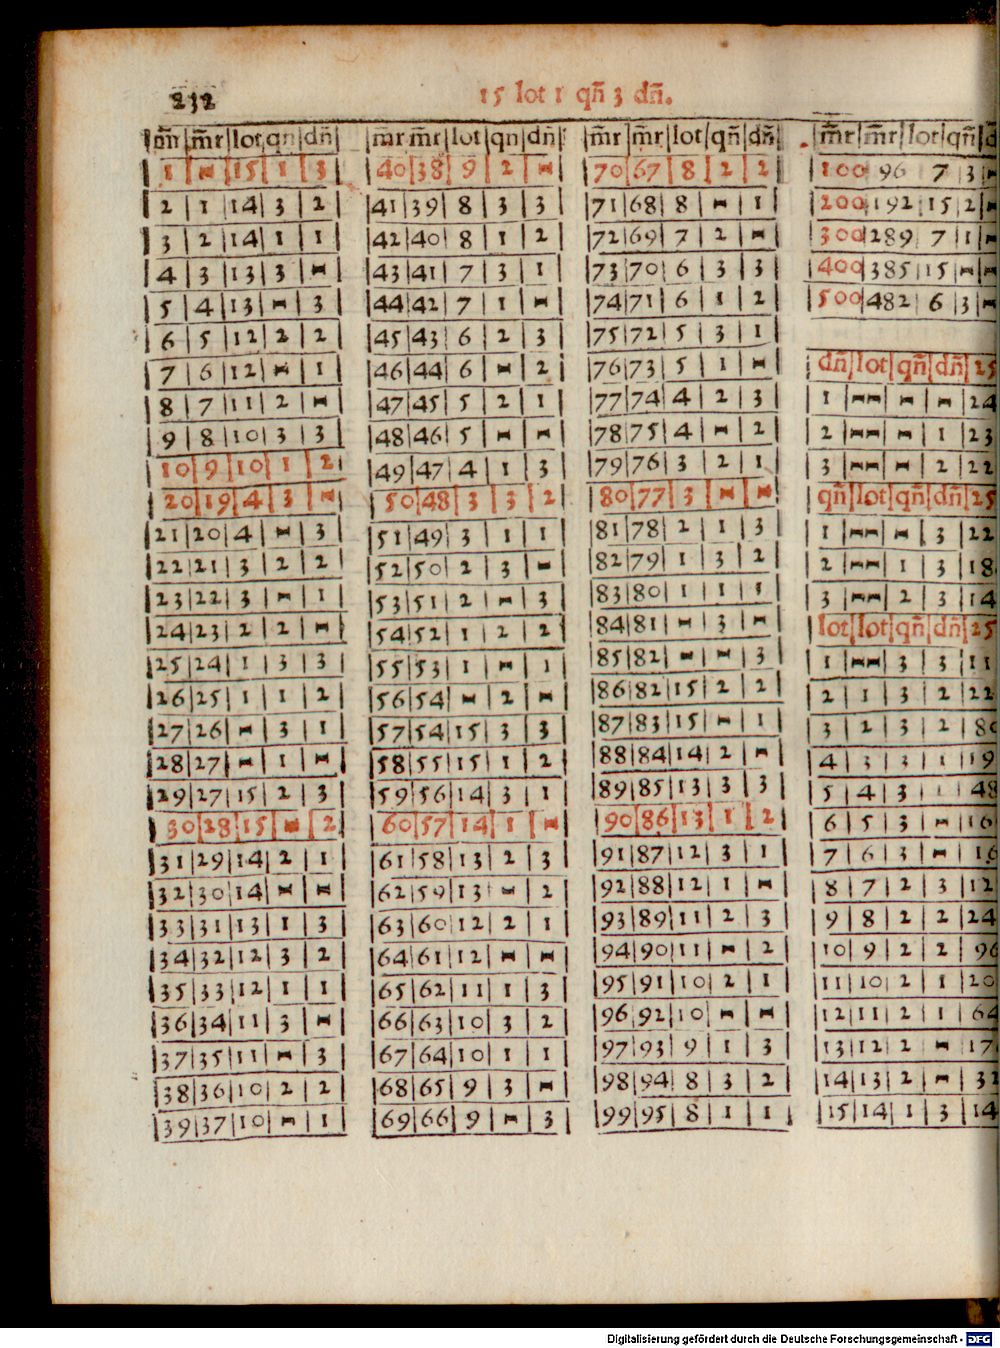 232
15 lot 1 qñ 3 dñ.
m̃r m̃r lot qñ dñ
1 - 15 1 3
2 1 14 3 2
3 2 14 1 1
4 3 13 3 -
5 4 13 - 3
6 5 12 2 2
7 6 12 - 1
8 7 11 2 -
9 8 10 3 3
10 9 10 1 2
20 19 4 3 -
21 20 4 - 3
22 21 3 2 2
23 22 3 - 1
24 23 2 2 -
25 24 1 3 3
26 25 1 1 2
27 26 - 3 1
28 27 - 1 -
29 27 15 2 3
30 28 15 - 2
31 29 14 2 1
32 30 14 - -
33 31 13 1 3
34 32 12 3 2
35 33 12 1 1
36 34 11 3 -
37 35 11 - 3
38 36 10 2 2
39 37 10 - 1
m̃r m̃r lot qñ dñ
40 38 9 2 -
41 39 8 3 3
42 40 8 1 2
43 41 7 3 1
44 42 7 1 -
45 43 6 2 3
46 44 6 - 2
47 45 5 2 1
48 46 5 - -
49 47 4 1 3
50 48 3 3 2
51 49 3 1 1
52 50 2 3 -
53 51 2 - 3
54 52 1 2 2
55 53 1 - 1
56 54 - 2 -
57 54 15 3 3
58 55 15 1 2
59 56 14 3 1
60 57 14 1 -
61 58 13 2 3
62 59 13 - 2
63 60 12 2 1
64 61 12 - -
65 62 11 1 3
66 63 10 3 2
67 64 10 1 1
68 65 9 3 -
69 66 9 - 3
m̃r m̃r lot qñ dñ
70 67 8 2 2
71 68 8 - 1
72 69 7 2 -
73 70 6 3 3
74 71 6 1 2
75 72 5 3 1
76 73 5 1 -
77 74 4 2 3
78 75 4 - 2
79 76 3 2 1
80 77 3 - -
81 78 2 1 3
82 79 1 3 2
83 80 1 1 1
84 81 - 3 -
85 82 - - 3
86 82 15 2 2
87 83 15 - 1
88 84 14 2 -
89 85 13 3 3
90 86 13 1 2
91 87 12 3 1
92 88 12 1 -
93 89 11 2 3
94 90 11 - 2
95 91 10 2 1
96 92 10 - -
97 93 9 1 3
98 94 8 3 2
99 95 8 1 1
m̃r m̃r lot qñ
100 96 7 3 -
200 192 15 2 -
300 289 7 1 -
400 385 15 - -
500 482 6 3 -
dñ lot qñ dñ 25
1 -- - - 24
2 -- - 1 23
3 -- - 2 22
qñ lot qñ dñ 25
1 -- - 3 22
2 -- 1 3 18
3 -- 2 3 14
lot lot qñ dñ 25
1 -- 3 3 11
2 1 3 2 22
3 2 3 2 80
4 3 3 1 19
5 4 3 1 48
6 5 3 - 16
7 6 3 - 16
8 7 2 3 12
9 8 2 2 24
10 9 2 2 96
11 10 2 1 20
12 11 2 1 64
13 12 2 - 17
14 13 2 - 32
15 14 1 3 14
Digitalisierung gefördert durch die Deutsche Forschungsgemeinschaft - DFG